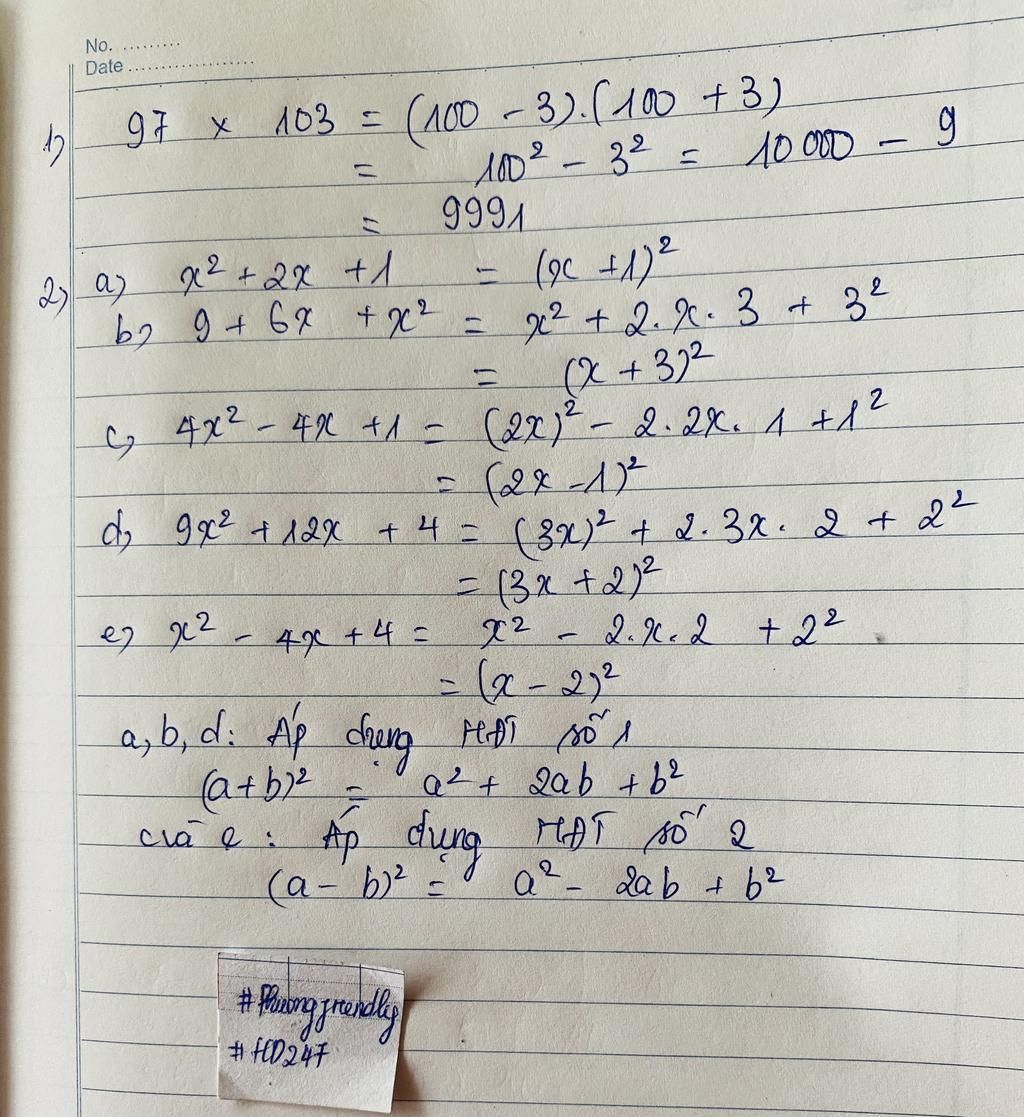 No. .........
Date ...................
1, 97 × 103 = (100 - 3).(100 + 3)
= 100² - 3² = 10000 - 9
= 9991
2, a, x² + 2x + 1 = (x + 1)²
b, 9 + 6x + x² = x² + 2.x.3 + 3²
= (x + 3)²
c, 4x² - 4x + 1 = (2x)² - 2.2x.1 + 1²
= (2x - 1)²
d, 9x² + 12x + 4 = (3x)² + 2.3x.2 + 2²
= (3x + 2)²
e, x² - 4x + 4 = x² - 2.x.2 + 2²
= (x - 2)²
a, b, d: Áp dụng HĐT số 1
(a+b)² = a² + 2ab + b²
c và e : Áp dụng HĐT số 2
(a - b)² = a² - 2ab + b²
#Phuongfriendly
#HD247